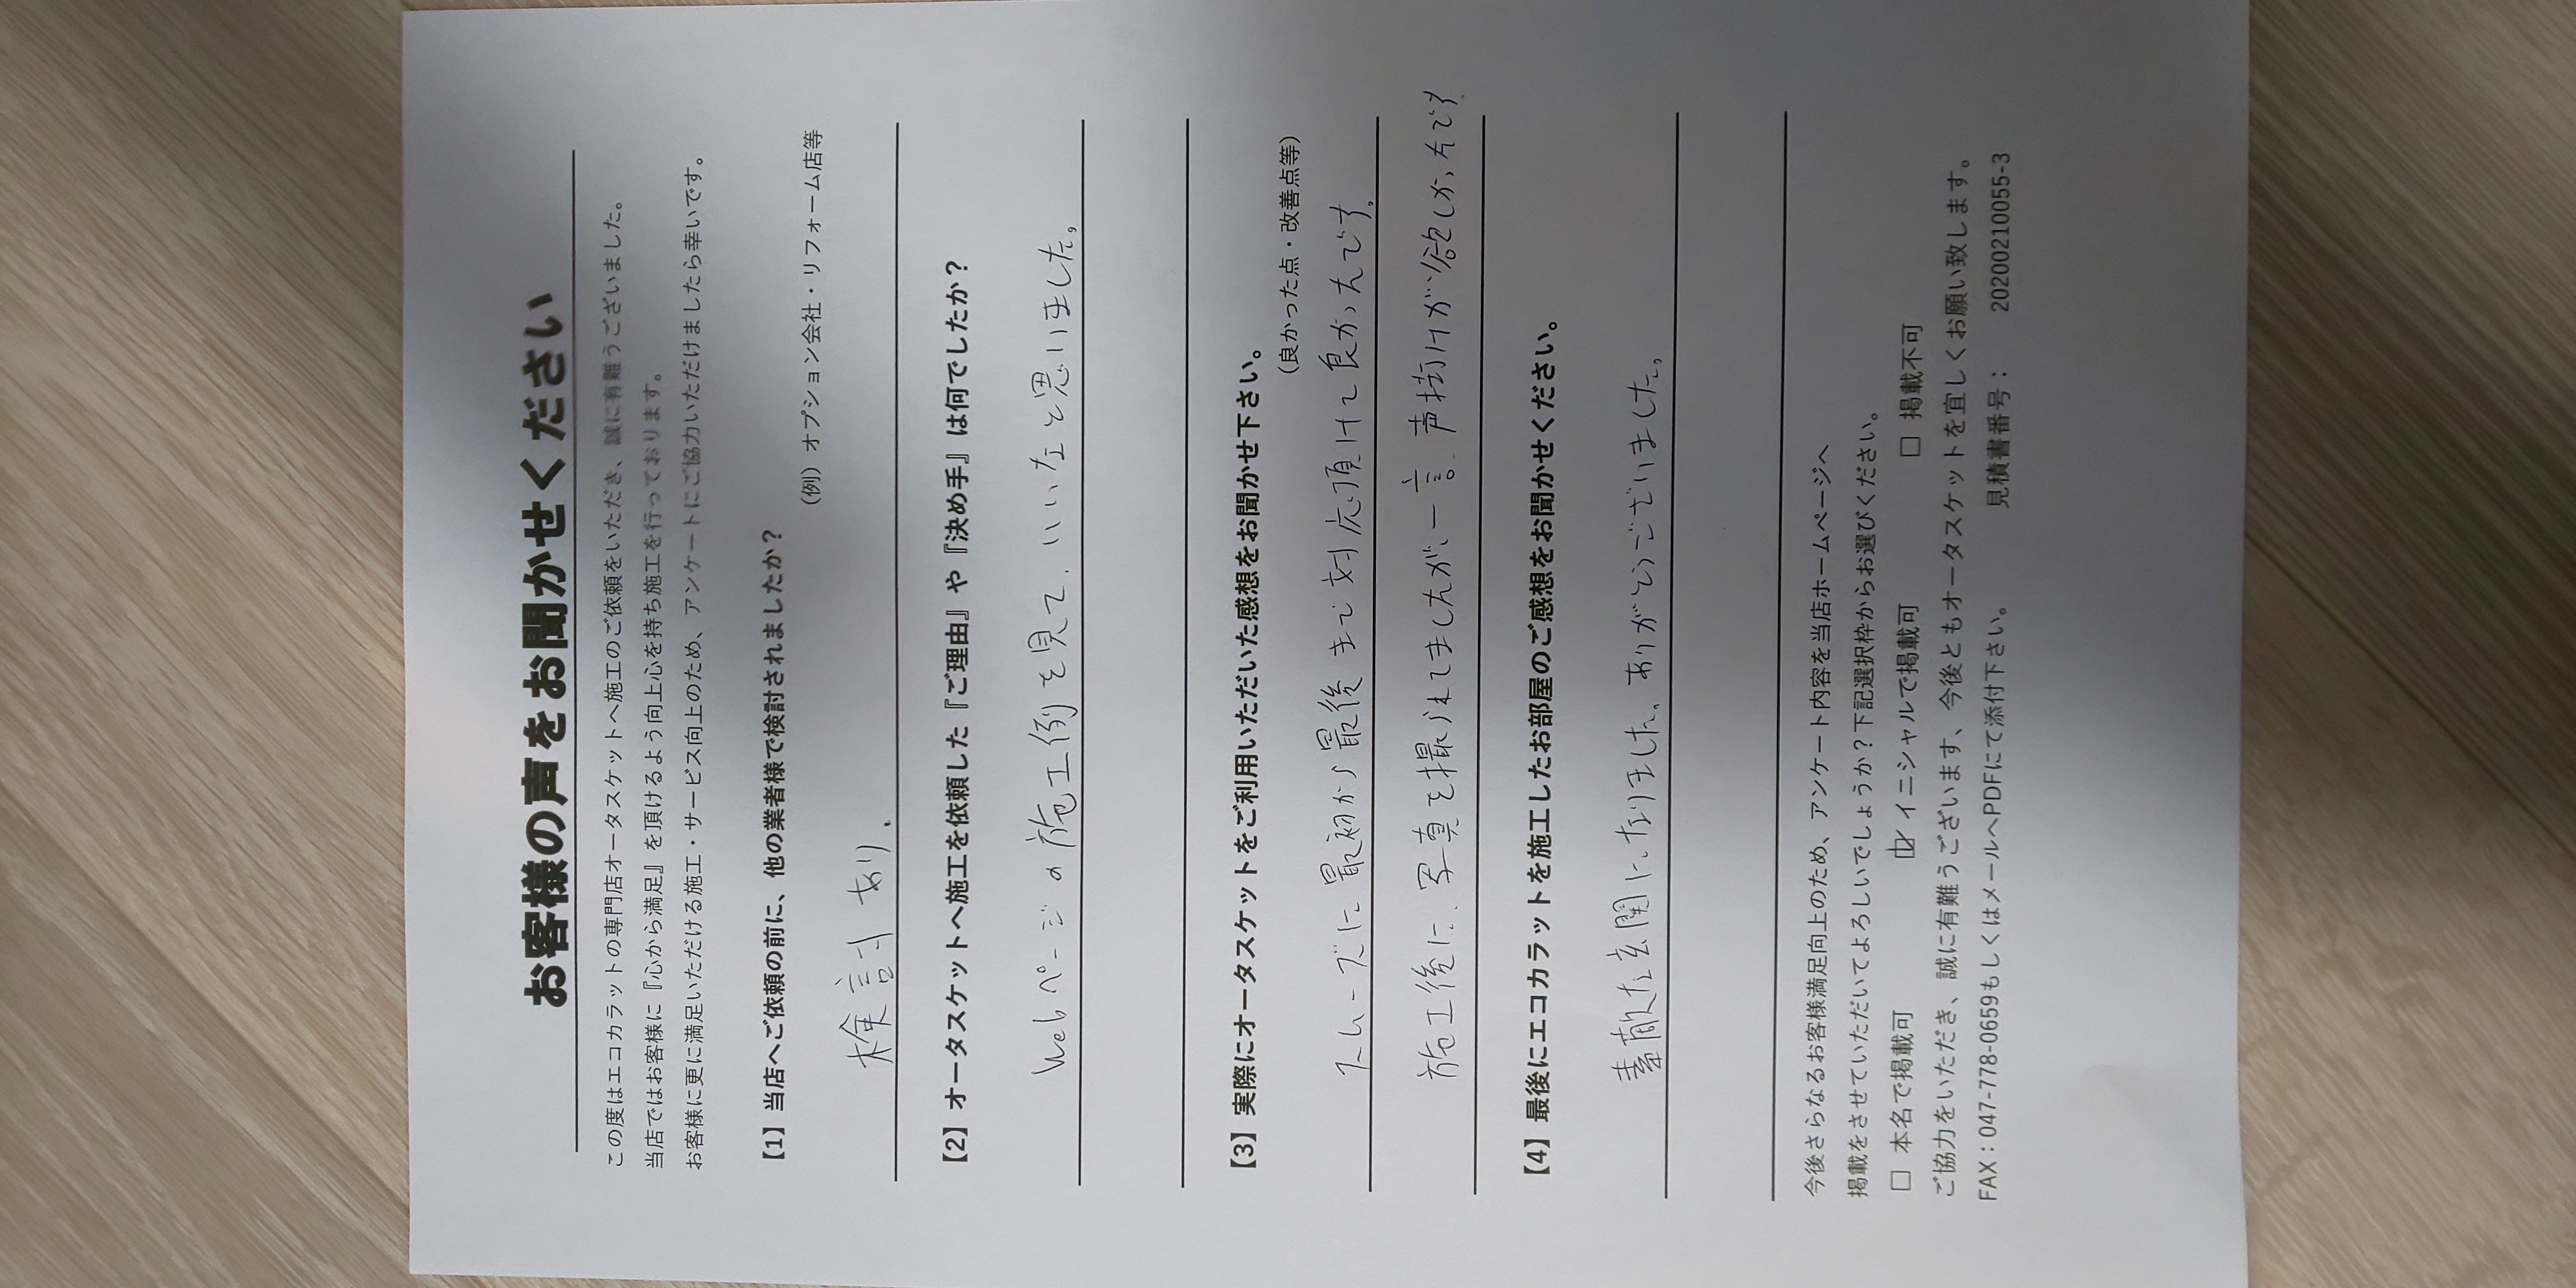 お客様の声をお聞かせください
この度はエコカラットの専門店オータスケットへ施工のご依頼をいただき、誠に有難うございました。
当店ではお客様に『心から満足』を頂けるよう向上心を持ち施工を行っております。
お客様に更に満足いただける施工・サービス向上のため、アンケートにご協力いただけましたら幸いです。
【1】当店へご依頼の前に、他の業者様で検討されましたか？
（例）オプション会社・リフォーム店等
検討あり.
【2】オータスケットへ施工を依頼した『ご理由』や『決め手』は何でしたか？
Webページの施工例を見て、いいなと思いました。
【3】実際にオータスケットをご利用いただいた感想をお聞かせ下さい。
（良かった点・改善点等）
スムーズに最初から最後まで対応頂けて良かったです。
施工後に、写真を撮られてましたが、一言、声掛けが欲しかったです.
【4】最後にエコカラットを施工したお部屋のご感想をお聞かせください。
素敵な玄関になりました。ありがとうございました。
今後さらなるお客様満足向上のため、アンケート内容を当店ホームページへ
掲載をさせていただいてよろしいでしょうか？下記選択枠からお選びください。
□ 本名で掲載可 ☑ イニシャルで掲載可 □ 掲載不可
ご協力をいただき、誠に有難うございます、今後ともオータスケットを宜しくお願い致します。
FAX：047-778-0659もしくはメールへPDFにて添付下さい。 見積書番号： 20200210055-3